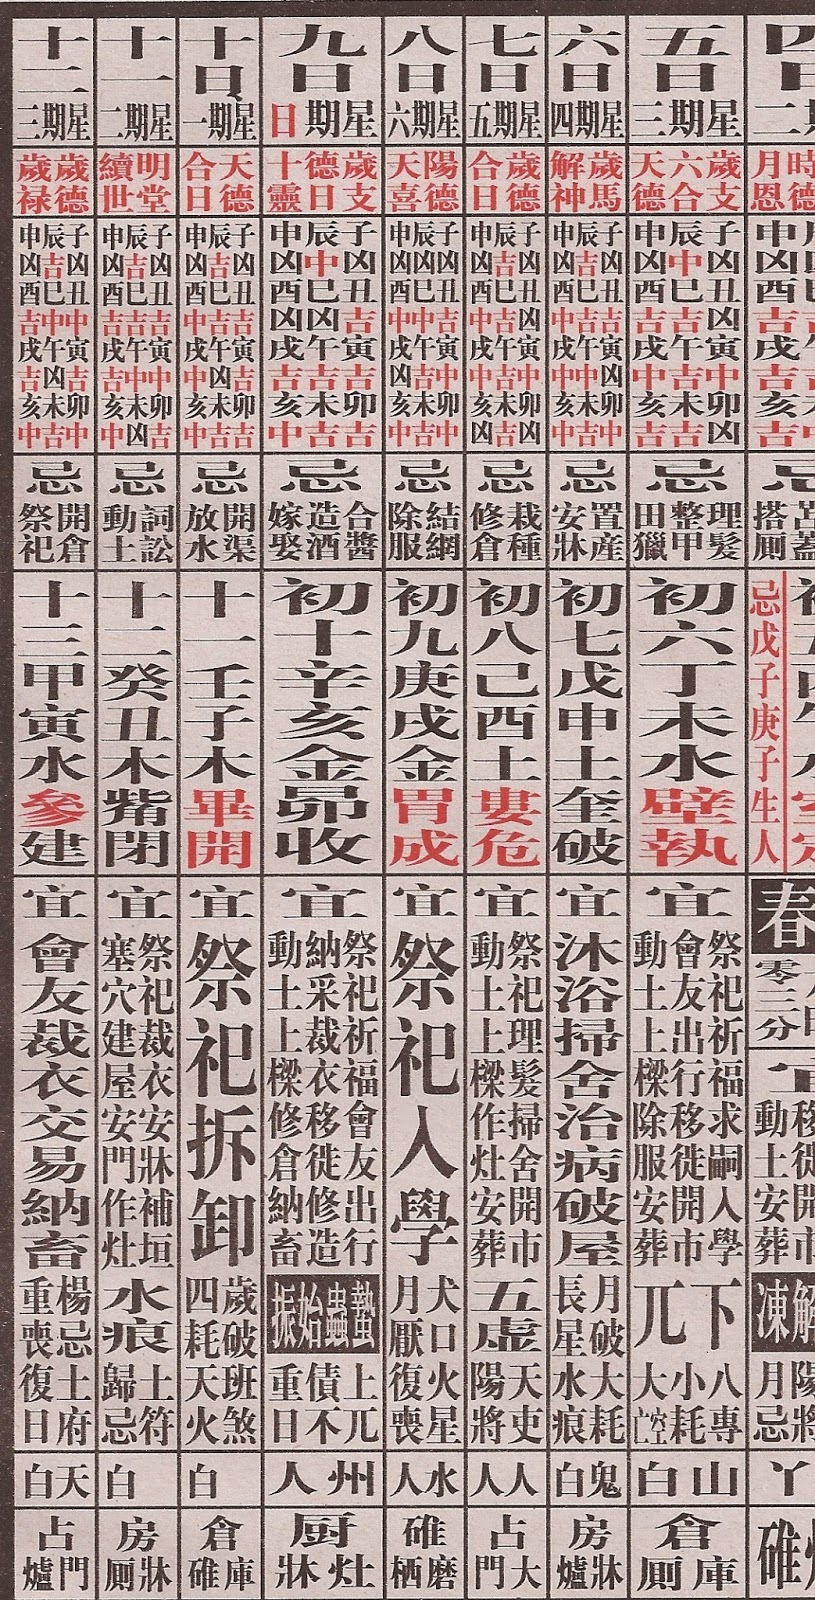 五日
星期三
歲支
六合
天德
子凶丑吉寅中卯凶
辰中巳吉午吉未吉
申凶酉吉戌中亥吉
忌
理髮
整甲
田獵
初六丁未水壁執
宜
祭祀祈福求嗣入學
會友出行移徙開市
動土上樑除服安葬
下兀
八專
小耗
大空亡
山白
倉庫廁
六日
星期四
歲馬
解神
子凶丑凶寅凶卯中
辰吉巳吉午中未吉
申凶酉中戌中亥中
忌
置產
安牀
初七戊申土奎破
宜
沐浴掃舍治病破屋
月破大耗
長星水痕
鬼白
房牀爐
七日
星期五
歲德
合日
子凶丑凶寅吉卯凶
辰吉巳吉午吉未吉
申凶酉中戌中亥凶
忌
栽種
修倉
初八己酉土婁危
宜
祭祀理髮掃舍開市
動土上樑作灶安葬
五虛
天吏
陽將
人人
占大門
八日
星期六
陽德
天喜
子凶丑吉寅中卯中
辰凶巳中午吉未吉
申凶酉中戌凶亥中
忌
結網
除服
初九庚戌金胃成
宜
祭祀入學
犬口火星
月厭復喪
水人
碓磨栖
九日
星期日
歲支
德日
十靈
子凶丑吉寅吉卯吉
辰中巳凶午吉未吉
申凶酉凶戌吉亥中
忌
合醬
造酒
嫁娶
初十辛亥金昴收
宜
祭祀祈福會友出行
納采裁衣移徙修造
動土上樑修倉納畜
蟄蟲始振
上兀
債不
重日
州人
厨灶牀
十日
星期一
天德
合日
子凶丑吉寅吉卯吉
辰吉巳吉午凶未吉
申凶酉中戌中亥中
忌
開渠
放水
十一壬子木畢開
宜
祭祀拆卸
歲破班煞
四耗天火
白
倉庫碓
十一
星期二
明堂
續世
子凶丑吉寅中卯吉
辰吉巳吉午中未凶
申凶酉吉戌吉亥中
忌
詞訟
動土
十二癸丑木觜閉
宜
祭祀裁衣安牀補垣
塞穴建屋安門作灶
水痕
土符
歸忌
白
房牀廁
十二
星期三
歲德
歲禄
子凶丑中寅吉卯中
辰吉巳中午凶未吉
申凶酉吉戌吉亥中
忌
開倉
祭祀
十三甲寅水參建
宜
會友裁衣交易納畜
楊忌土府
重喪復日
天白
占門爐